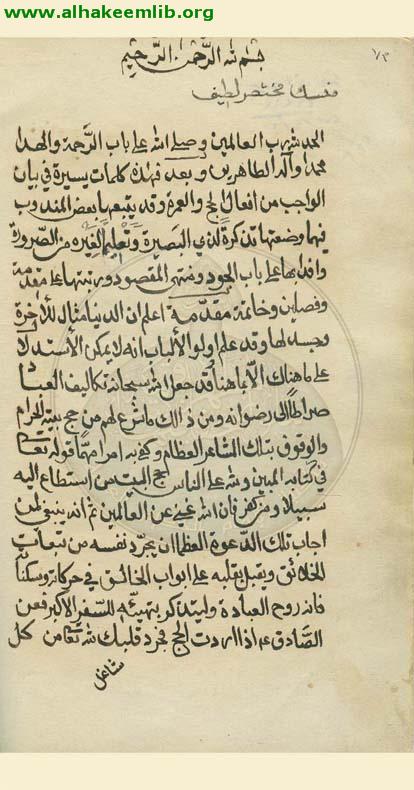 www.alhakeemlib.org
بسم الله الرحمن الرحيم
١٧٣
منسك مختصر لطيف
الحمد لله رب العالمين وصلى الله على باب الرحمة والهدا
محمد وآله الطاهرين وبعد فهذه كلمات يسيرة في بيان
الواجب من افعال الحج والعمرة وقد يتبعها بعض المندوب
فيها وضعتها تذكرة لذي البصيرة وتعليم لغيره من الصرورة
وافدا بها على باب الجود ومنتهى المقصود ورتبتها على مقدمة
وفصلين وخاتمة مقدمة اعلم ان الدنيا مثال للاخرة
وجسد لها وقد علم اولو الألباب انه لا يمكن الأستدلا
على ما هناك الا بما هنا قد جعل الله سبحانه تكاليف العبا
صراطا الى رضوانه ومن ذالك ما شرع لهم من حج بيته الحرام
والوقوف بتلك المشاعر العظام وكفى به امرامهما قوله تعالى
في كتابه المبين ولله على الناس حج البيت من استطاع اليه
سبيلا ومن كفر فان الله غني عن العالمين ثم انه ينبغي لمن
اجاب تلك الدعوة العظما ان يجرد نفسه من تبعات
الخلائق ويقبل بقلبه على ابواب الخالق في حركاته وسكناته
فانه روح العبادة وليتذكر بتهيئه للسفر الاكبر فعن
الصادق ع اذا اردت الحج فجرد قلبك لله تعالى من كل
شاغل